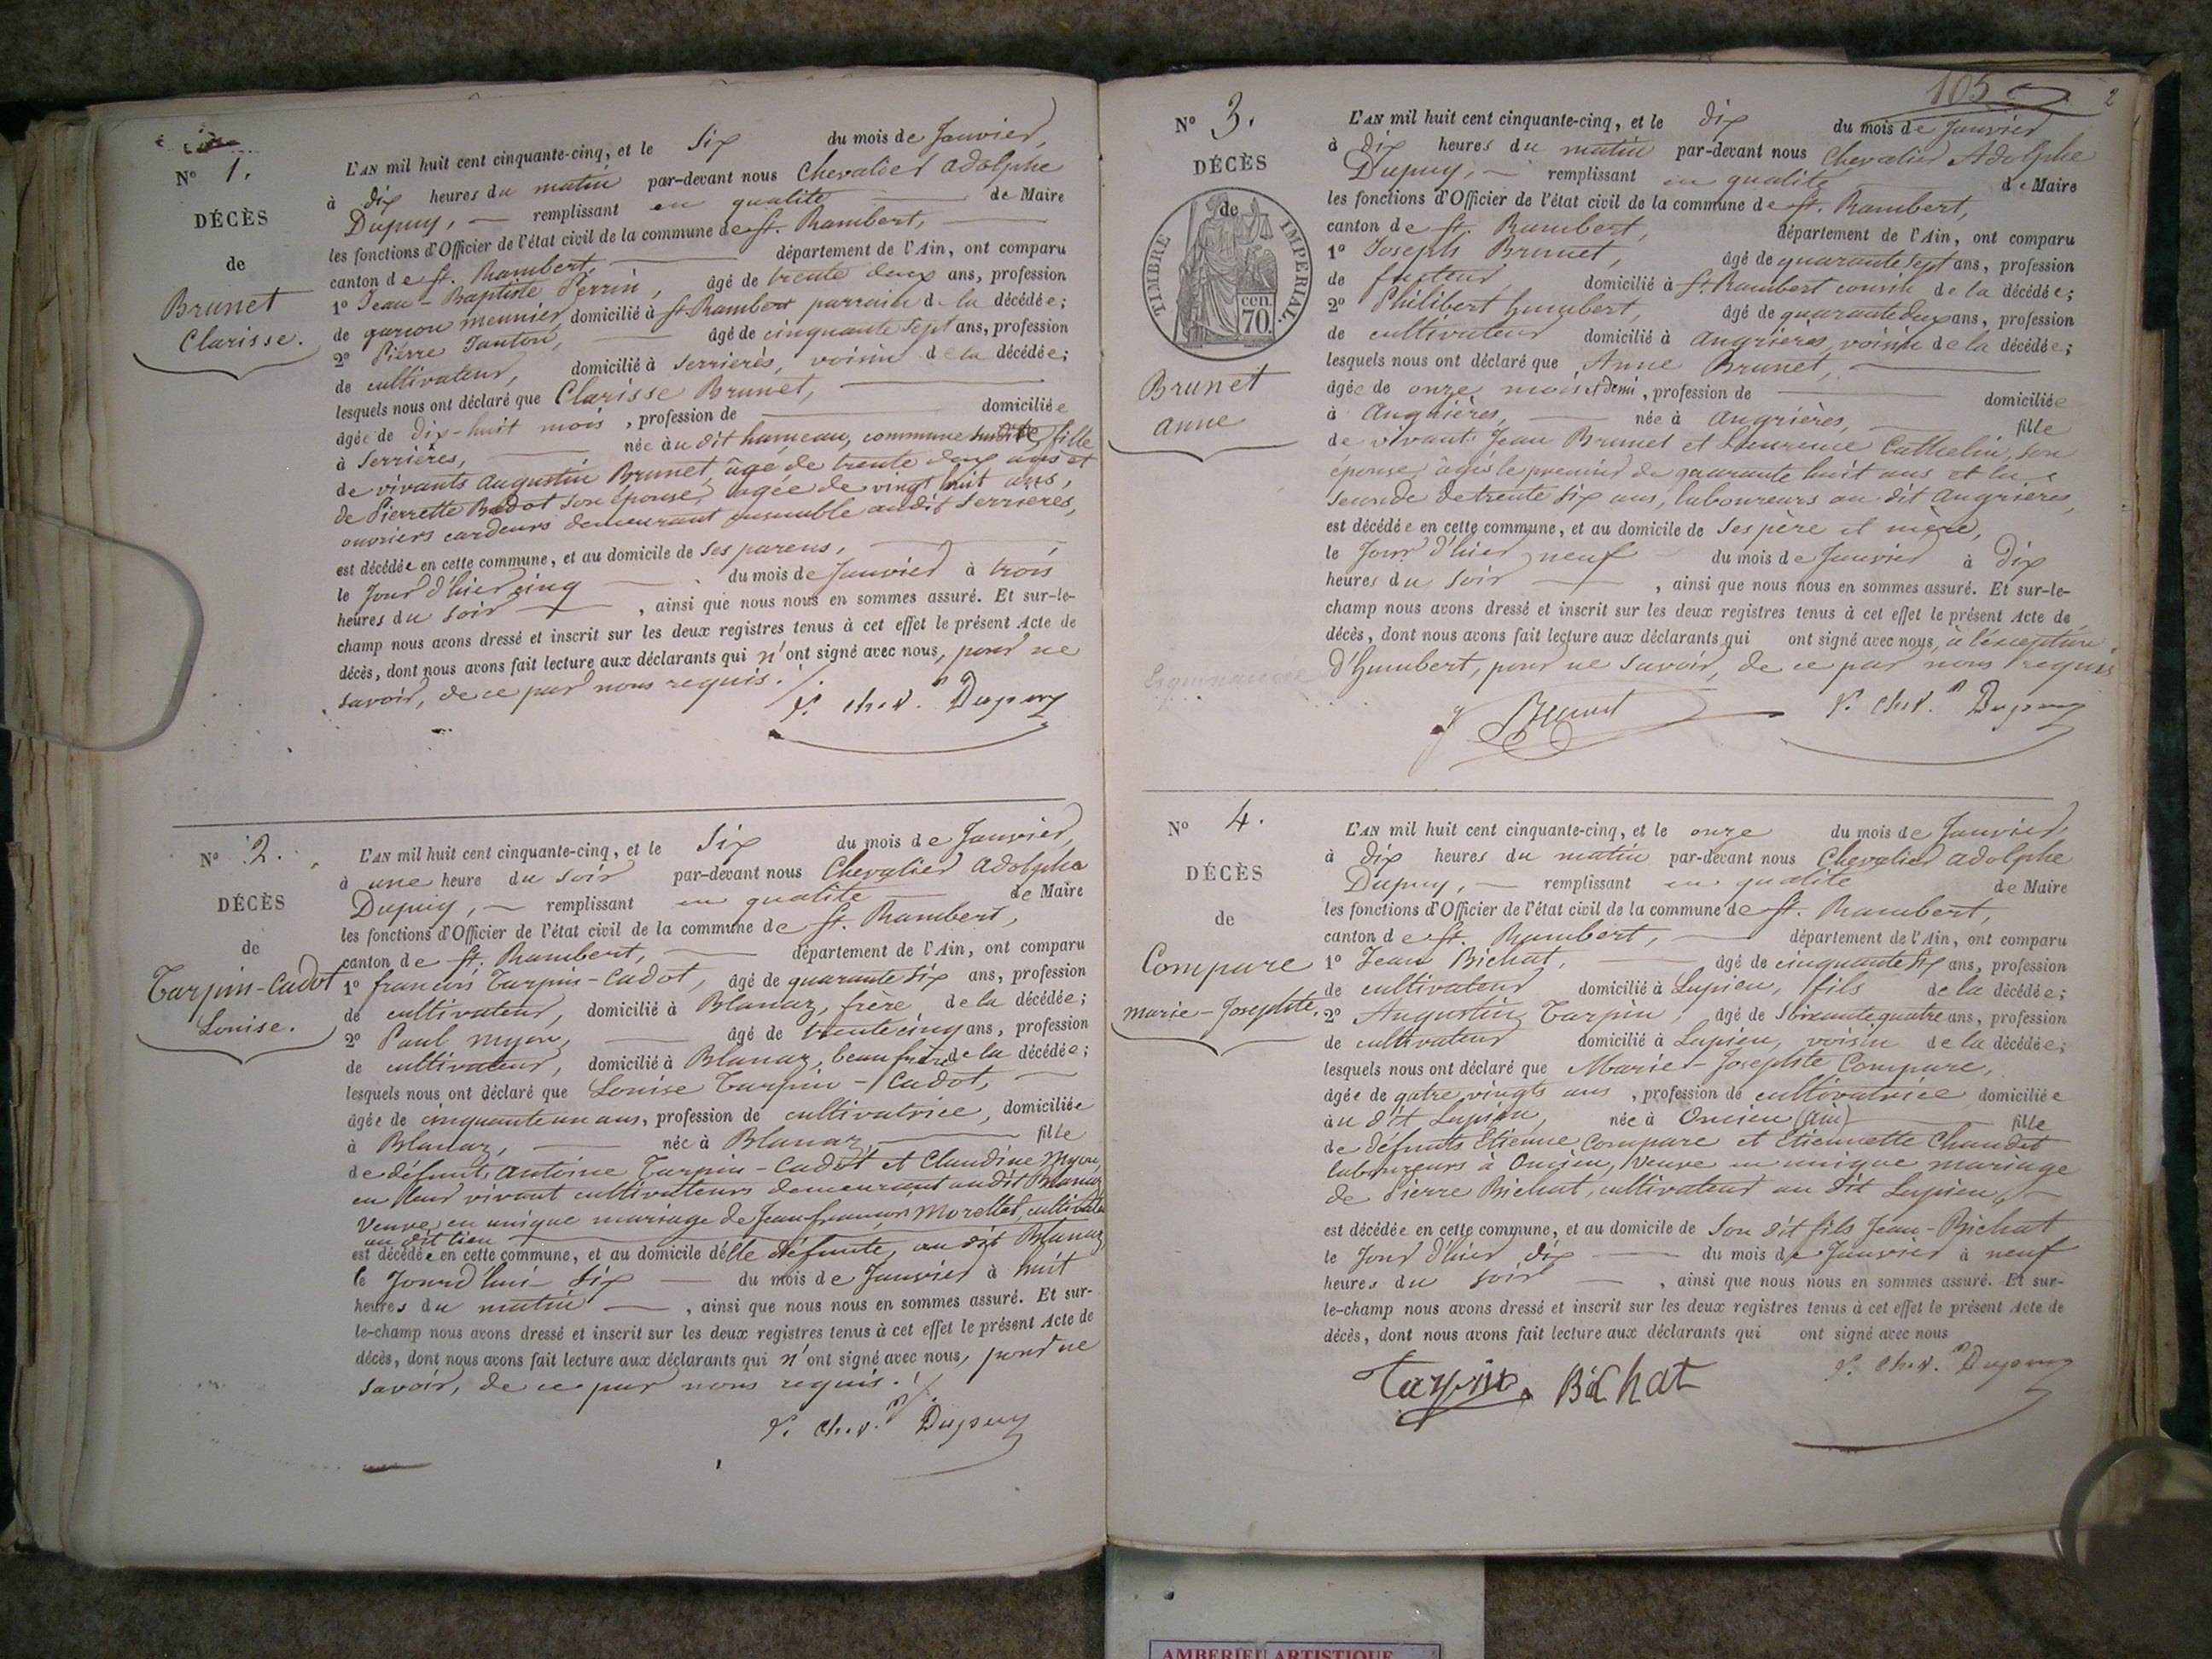 N° 1.
DÉCÈS
de
Brunet
Clarisse.
L'AN mil huit cent cinquante-cinq, et le Six du mois de Janvier,
à dix heures du matin par-devant nous Chevalier Adolphe
Dupuy, remplissant en qualité de Maire
les fonctions d'Officier de l'état civil de la commune de St. Rambert,
canton de St. Rambert, département de l'Ain, ont comparu
1° Jean-Baptiste Perrin, âgé de trente deux ans, profession
de garçon meunier, domicilié à St Rambert parrain de la décédée;
2° Pierre Tanton, âgé de cinquante Sept ans, profession
de cultivateur, domicilié à Serrières, voisin de la décédée;
lesquels nous ont déclaré que Clarisse Brunet,
âgée de dix-huit mois, profession de domiciliée
à Serrières, née au dit hameau, commune Susdite, fille
de vivants Augustin Brunet, âgé de trente deux ans et
de Pierrette Badot Son épouse, agée de vingt huit ans,
ouvriers cardeurs demeurant ensemble audit Serrières,
est décédée en cette commune, et au domicile de Ses parens,
le Jour d'hier cinq du mois de Janvier à trois
heures du Soir, ainsi que nous nous en sommes assuré. Et sur-le-
champ nous avons dressé et inscrit sur les deux registres tenus à cet effet le présent Acte de
décès, dont nous avons fait lecture aux déclarants qui n'ont signé avec nous, pour ne
Savoir, de ce par nous requis./.
Chev. Dupuy
N° 2.
DÉCÈS
de
Turpin-Cadot
Louise.
L'AN mil huit cent cinquante-cinq, et le Six du mois de Janvier,
à une heure du Soir par-devant nous Chevalier Adolphe
Dupuy, remplissant en qualité de Maire
les fonctions d'Officier de l'état civil de la commune de St. Rambert,
canton de St. Rambert, département de l'Ain, ont comparu
1° françois Turpin-Cadot, âgé de quarante Six ans, profession
de cultivateur, domicilié à Blanaz, frère de la décédée;
2° Paul Myon, âgé de trente cinq ans, profession
de cultivateur, domicilié à Blanaz, beau frère de la décédée;
lesquels nous ont déclaré que Louise Turpin-Cadot,
âgée de cinquante un ans, profession de cultivatrice, domiciliée
à Blanaz, née à Blanaz, fille
de défunts Antoine Turpin-Cadot et Claudine Myon,
en leur vivant cultivateurs demeurant audit Blanaz
Veuve en unique mariage de Jean-françois Morellet, cultivateur
au dit lieu
est décédée en cette commune, et au domicile d'elle défunte, au dit Blanaz
le Jourd'hui Six du mois de Janvier à huit
heures du matin, ainsi que nous nous en sommes assuré. Et sur-
le-champ nous avons dressé et inscrit sur les deux registres tenus à cet effet le présent Acte de
décès, dont nous avons fait lecture aux déclarants qui n'ont signé avec nous, pour ne
Savoir, de ce par nous requis./.
Chev. Dupuy
105 2
N° 3.
DÉCÈS
de
TIMBRE IMPERIAL
cen.
70.
Brunet
Anne
L'AN mil huit cent cinquante-cinq, et le dix du mois de Janvier
à Dix heures du matin par-devant nous Chevalier Adolphe
Dupuy, remplissant en qualité de Maire
les fonctions d'Officier de l'état civil de la commune de St. Rambert,
canton de St. Rambert, département de l'Ain, ont comparu
1° Joseph Brunet, âgé de quarante Sept ans, profession
de facteur, domicilié à St Rambert cousin de la décédée;
2° Philibert humbert, âgé de quarante deux ans, profession
de cultivateur domicilié à Angrières, voisin de la décédée;
lesquels nous ont déclaré que Anne Brunet,
âgée de onze mois et demi, profession de domiciliée
à Angrières, née à Angrières, fille
de vivants Jean Brunet et Laurence Cathelin, son
épouse, âgés le premier de quarante huit ans et la
Seconde de trente Six ans, laboureurs au dit Angrières,
est décédée en cette commune, et au domicile de Ses père et mère,
le Jour d'hier neuf du mois de Janvier à Dix
heures du Soir, ainsi que nous nous en sommes assuré. Et sur-le-
champ nous avons dressé et inscrit sur les deux registres tenus à cet effet le présent Acte de
décès, dont nous avons fait lecture aux déclarants qui ont signé avec nous, à l'exception
d'humbert, pour ne Savoir, de ce par nous requis
J Brunet Chev. Dupuy
N° 4.
DÉCÈS
de
Compare
Marie-Josephte,
L'AN mil huit cent cinquante-cinq, et le onze du mois de Janvier,
à Dix heures du matin par-devant nous Chevalier Adolphe
Dupuy, remplissant en qualité de Maire
les fonctions d'Officier de l'état civil de la commune de St. Rambert,
canton de St. Rambert, département de l'Ain, ont comparu
1° Jean Bichat, âgé de cinquante Six ans, profession
de cultivateur domicilié à Lupieu, fils de la décédée;
2° Augustin Turpin, âgé de Soixante quatre ans, profession
de cultivateur domicilié à Lupieu, voisin de la décédée;
lesquels nous ont déclaré que Marie-Josephte Compare,
âgée de qatre vingts ans, profession de cultivatrice domiciliée
au dit Lupieu, née à Oncieu (Ain) fille
de défunts Etienne Compare et Etiennette Chaudet
laboureurs à Oncieu, Veuve en unique mariage
de Pierre Bichat, cultivateur au dit Lupieu,
est décédée en cette commune, et au domicile de Son dit fils Jean-Bichat
le Jour d'hier dix du mois de Janvier à neuf
heures du Soir, ainsi que nous nous en sommes assuré. Et sur-
le-champ nous avons dressé et inscrit sur les deux registres tenus à cet effet le présent Acte de
décès, dont nous avons fait lecture aux déclarants qui ont signé avec nous
Turpin Bichat Chev. Dupuy
AMBERIEU ARTISTIQUE